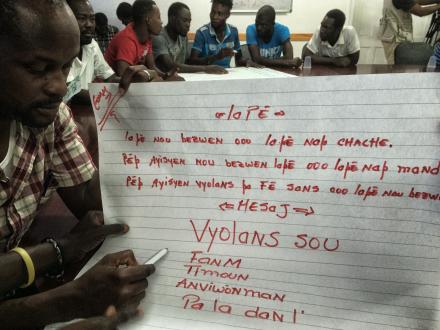 unicef
«laPÈ»
lapè nou bezwen ooo lapè nap chache.
Pèp Ayisyen nou bezwen lapè ooo lapè nap mand
Pèp Ayisyen vyolans pa fè sans ooo lapè nou bezwe
<= MESaJ =>
Vyolans sou
Fanm
Timoun
Anviwonman
Pa la dan l'